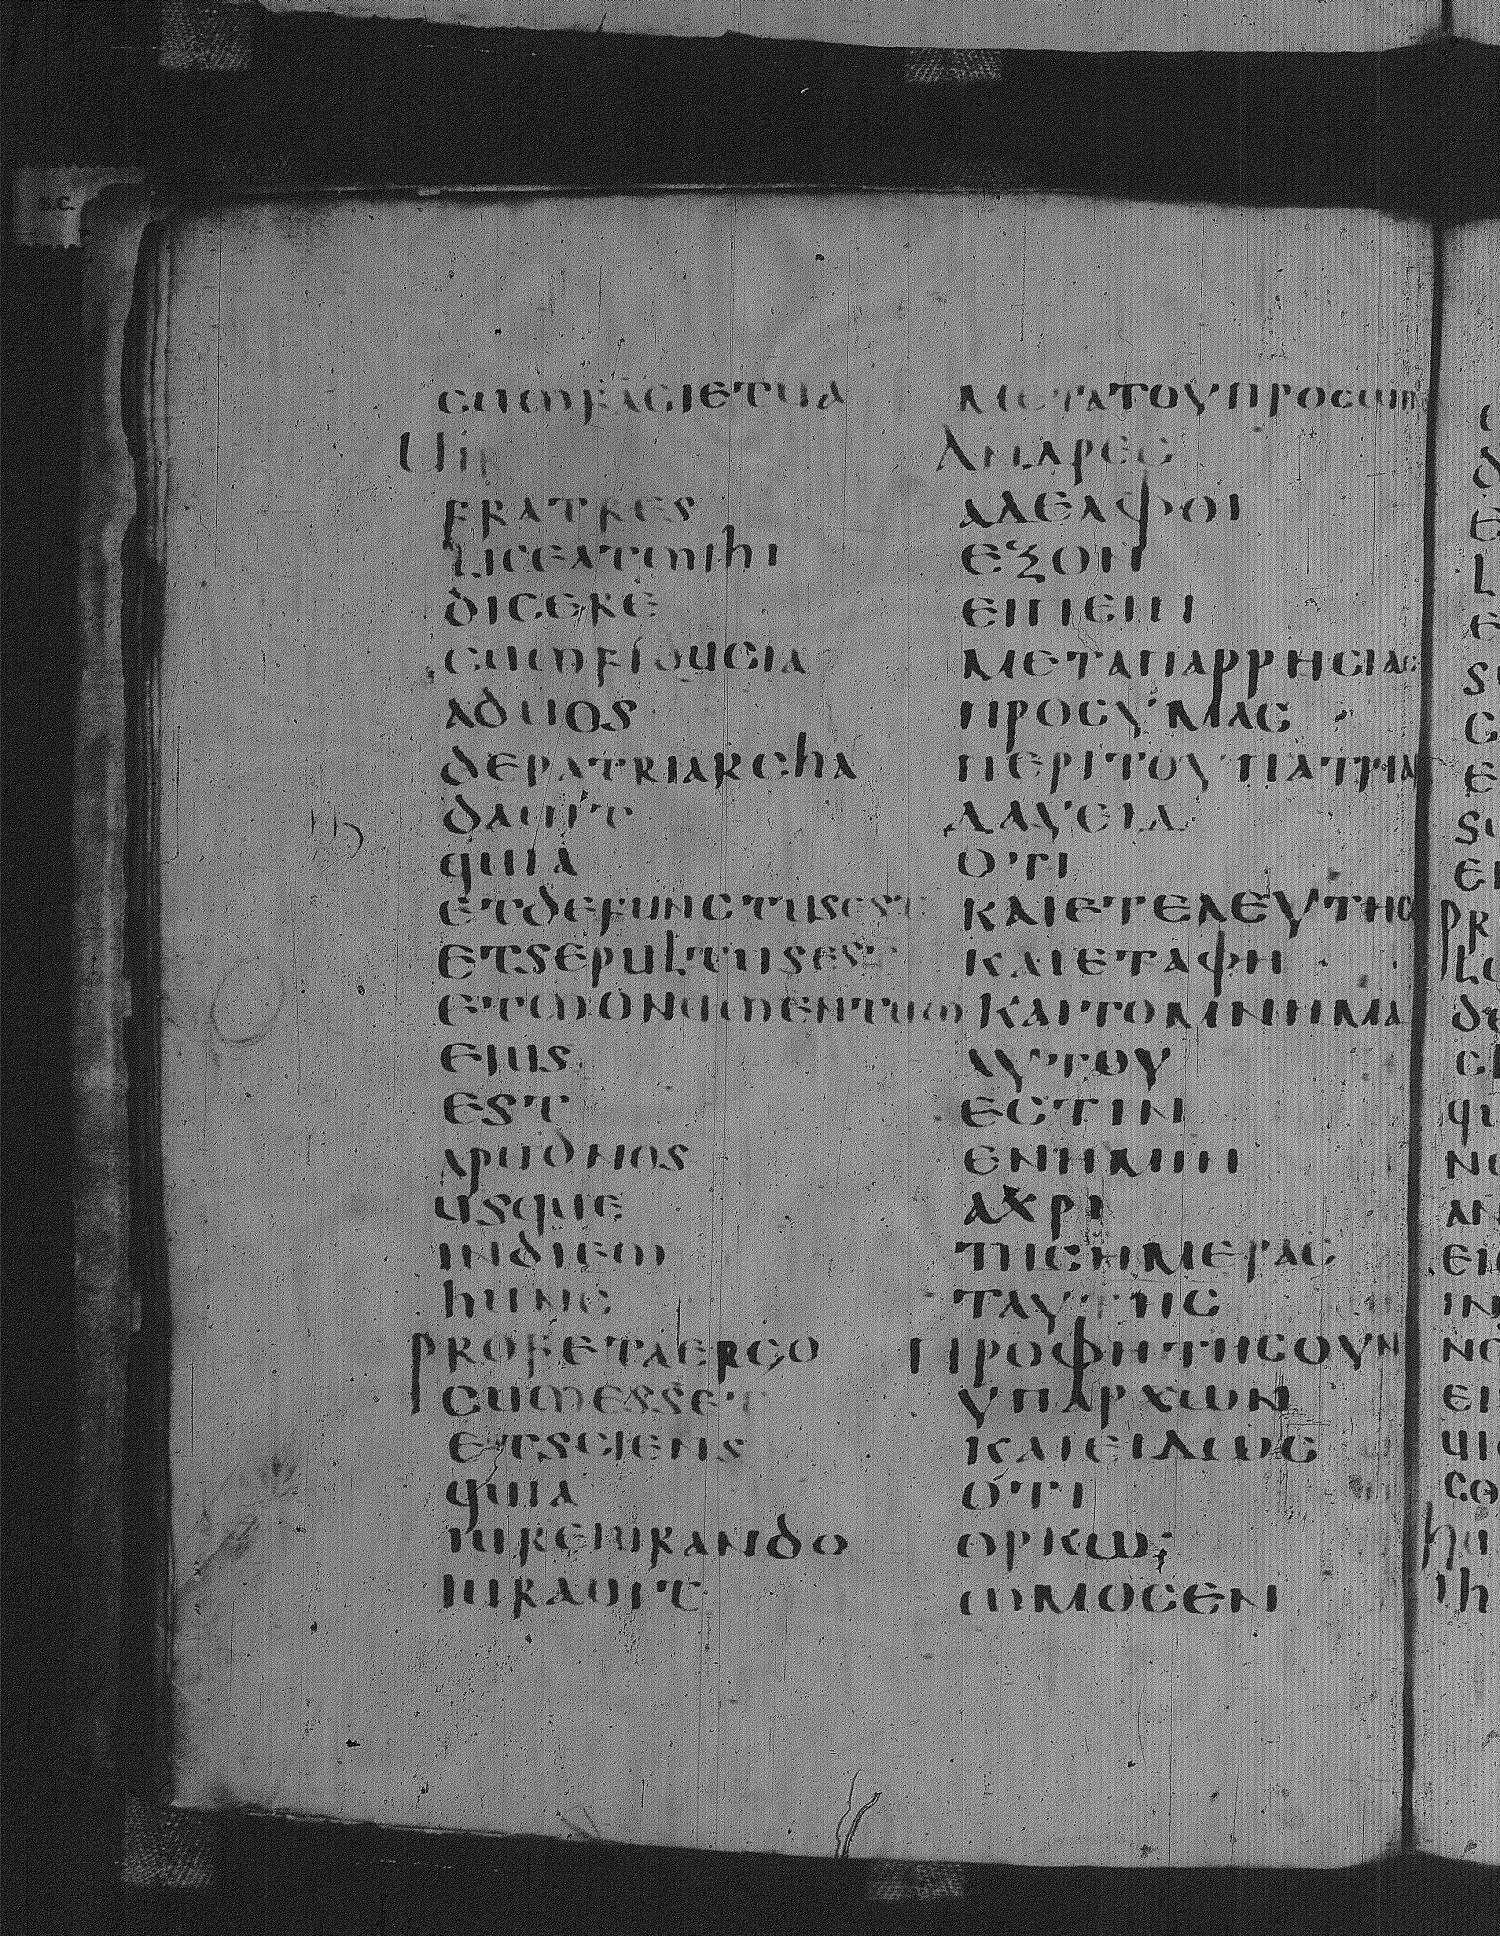 cumfacietua
Uir
fratres
liceatmihi
dicere
cumfiducia
aduos
depatriarcha
dauit
quia
etdefunctusest
etsepultusest
etmonumentum
eius
est
apudnos
usque
indiem
hunc
profetaergo
cumesset
etsciens
quia
iureiurando
iurauit
ΜΕΤΑΤΟΥΠΡΟСωπ
ΑΝΔΡΕС
ΑΔΕΛΦΟΙ
ΕΞΟΝ
ΕΙΠΕΙΝ
ΜΕΤΑΠΑΡΡΗСΙΑС
ΠΡΟСΥΜΑС
ΠΕΡΙΤΟΥΠΑΤΡΙΑ
ΔΑΥΕΙΔ
ΟΤΙ
ΚΑΙΕΤΕΛΕΥΤΗС
ΚΑΙΕΤΑΦΗ
ΚΑΙΤΟΜΝΗΜΑ
ΑΥΤΟΥ
ΕСΤΙΝ
ΕΝΗΜΙΝ
ΑΧΡΙ
ΤΗСΗΜΕΡΑС
ΤΑΥΤΗС
ΠΡΟΦΗΤΗСΟΥΝ
ΥΠΑΡΧωΝ
ΚΑΙΕΙΔωС
ΟΤΙ
ΟΡΚω;
ωΜΟСΕΝ